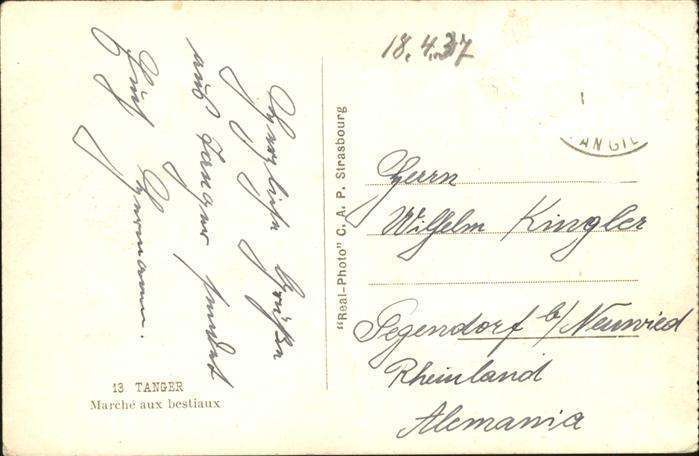 Herzliche Grüße
aus Tanger sendet
Euch Hermann.
13 TANGER
Marché aux bestiaux
"Real-Photo" C. A. P. Strasbourg
18.4.37
ANGE
Herrn
Wilhelm Kingler
Segendorf b/Neuwied
Rheinland
Alemania